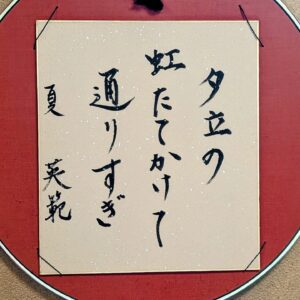 夕立の
虹たてかけて
通りすぎ
夏 英範